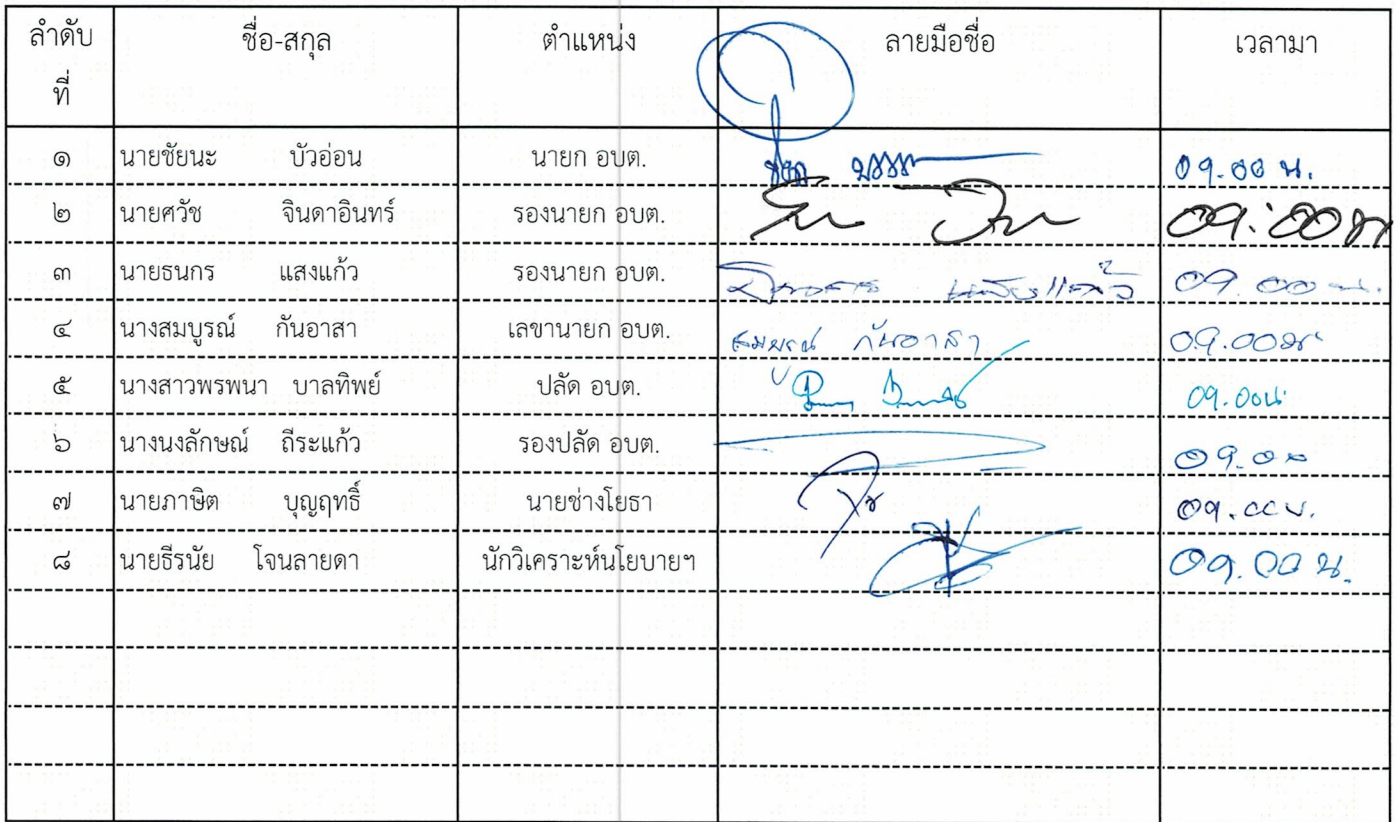 ลำดับที่ ชื่อ-สกุล ตำแหน่ง ลายมือชื่อ เวลามา
๑ นายชัยนะ บัวอ่อน นายก อบต. 09.00 น.
๒ นายศวัช จินดาอินทร์ รองนายก อบต. 09:00 น
๓ นายธนกร แสงแก้ว รองนายก อบต. 09.00 น.
๔ นางสมบูรณ์ กันอาสา เลขานายก อบต. สมบูรณ์ กันอาสา 09.00น
๕ นางสาวพรพนา บาลทิพย์ ปลัด อบต. 09.00น
๖ นางนงลักษณ์ ถีระแก้ว รองปลัด อบต. 09.00
๗ นายภาษิต บุญฤทธิ์ นายช่างโยธา 09.00น.
๘ นายธีรนัย โจนลายดา นักวิเคราะห์นโยบายฯ 09.00 น.